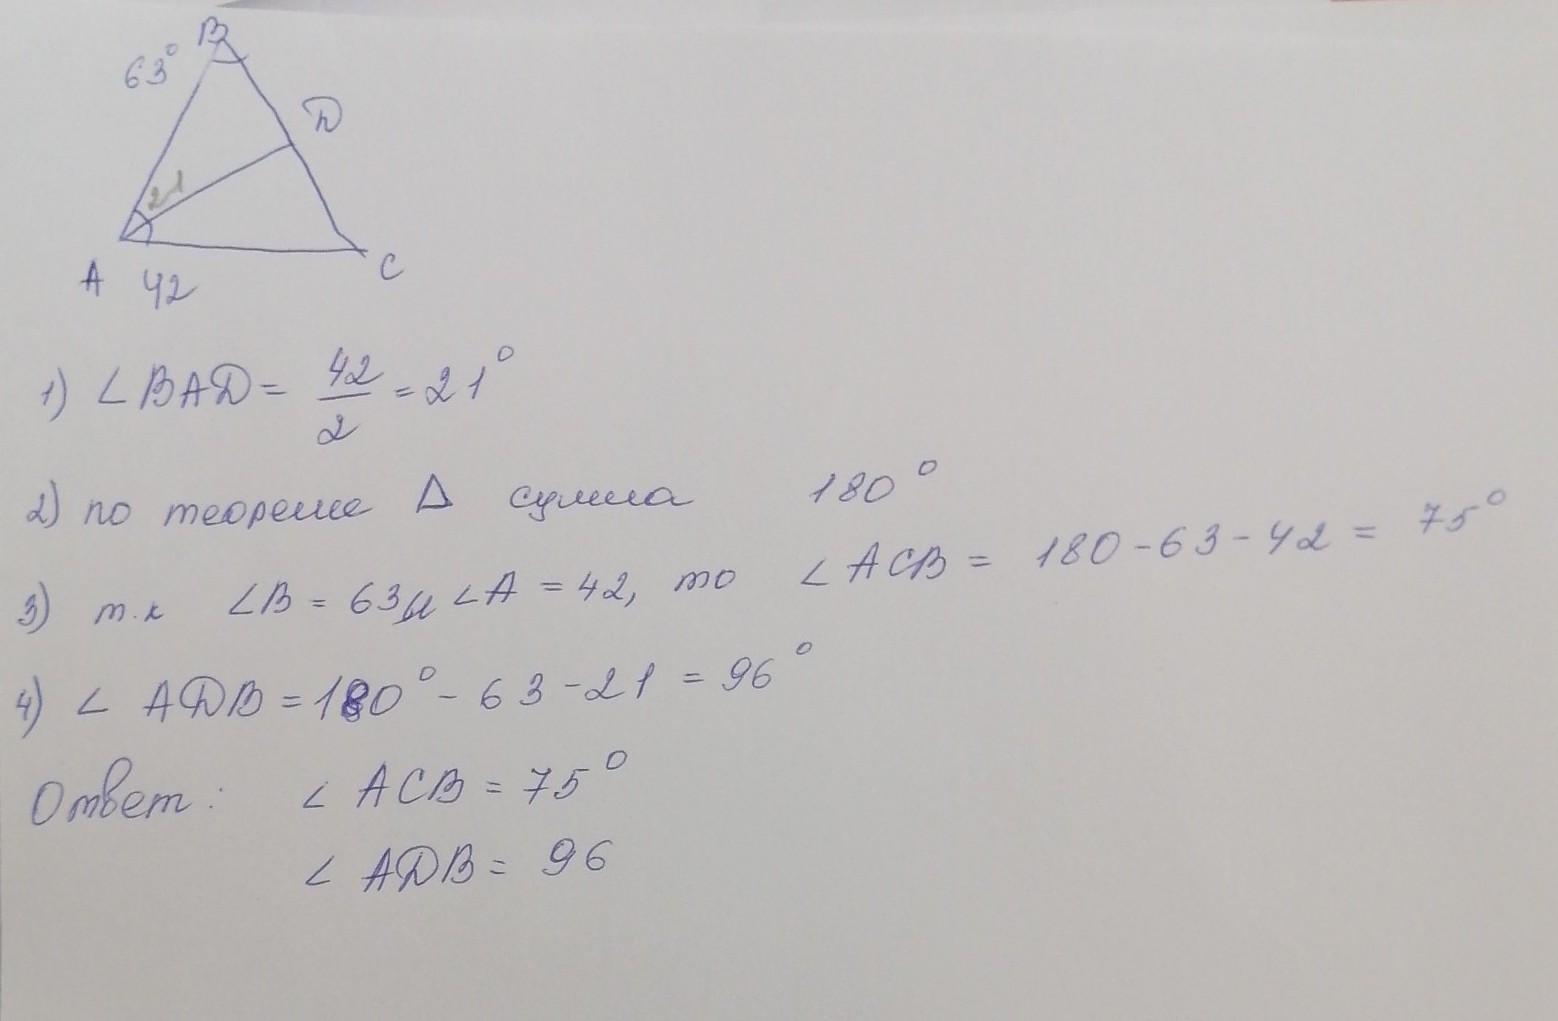 B
63°
D
21
A 42
C
1) ∠BAD = 42/2 = 21°
2) по теореме Δ сумма 180°
3) т.к ∠B = 63 и ∠A = 42, то ∠ACB = 180 - 63 - 42 = 75°
4) ∠ ADB = 180° - 63 - 21 = 96°
Ответ: ∠ ACB = 75°
∠ ADB = 96